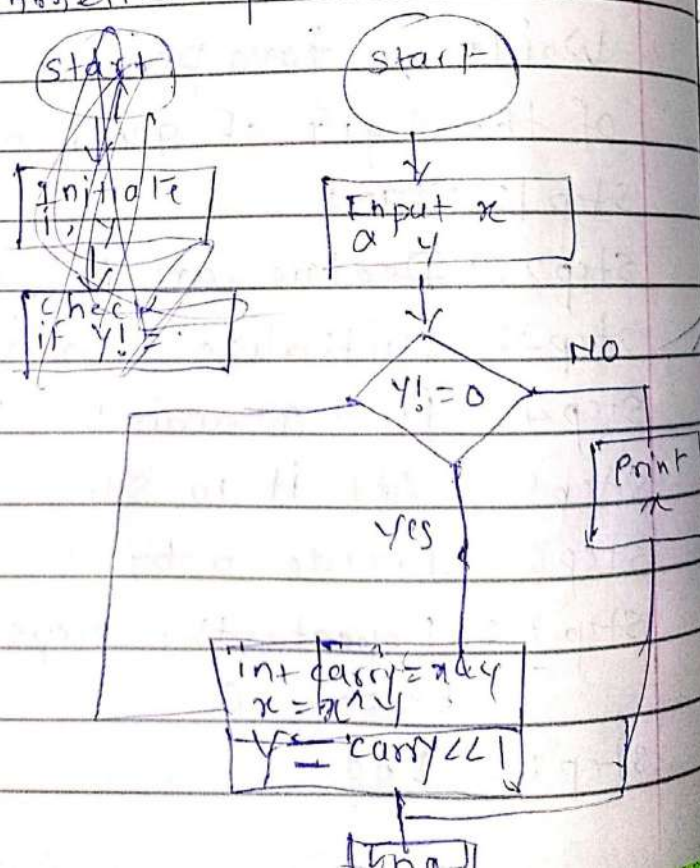 start
Initiate
i, y
check
if y! =
start
Input x
& y
y! = 0
NO
Print
x
Yes
int carry = x & y
x = x ^ y
y = carry << 1
End